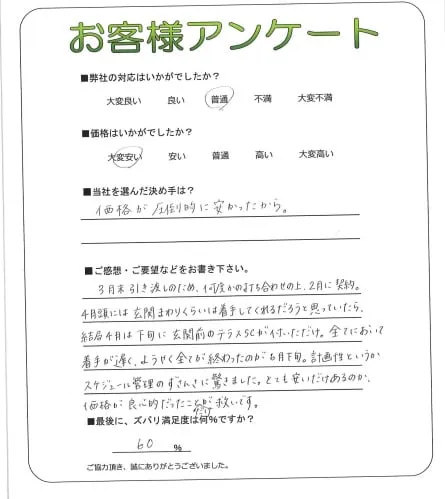 お客様アンケート
■弊社の対応はいかがでしたか?
大変良い 良い 普通 不満 大変不満
■価格はいかがでしたか?
大変安い 安い 普通 高い 大変高い
■当社を選んだ決め手は?
価格が圧倒的に安かったから。
■ご感想・ご要望などをお書き下さい。
3月末引き渡しのため、何度かの打ち合わせの上、2月に契約。
4月頭には玄関まわりくらいは着手してくれるだろうと思っていたら、
結局4月は下旬に玄関前のテラスSCが付いただけ。全てにおいて
着手が遅く、ようやく全てが終わったのが6月下旬。計画性というか
スケジュール管理のずさんさに驚きました。とても安いだけあるのか、
価格が良心的だったことだけが救いです。
■最後に、ズバリ満足度は何%ですか?
60 %
ご協力頂き、誠にありがとうございました。